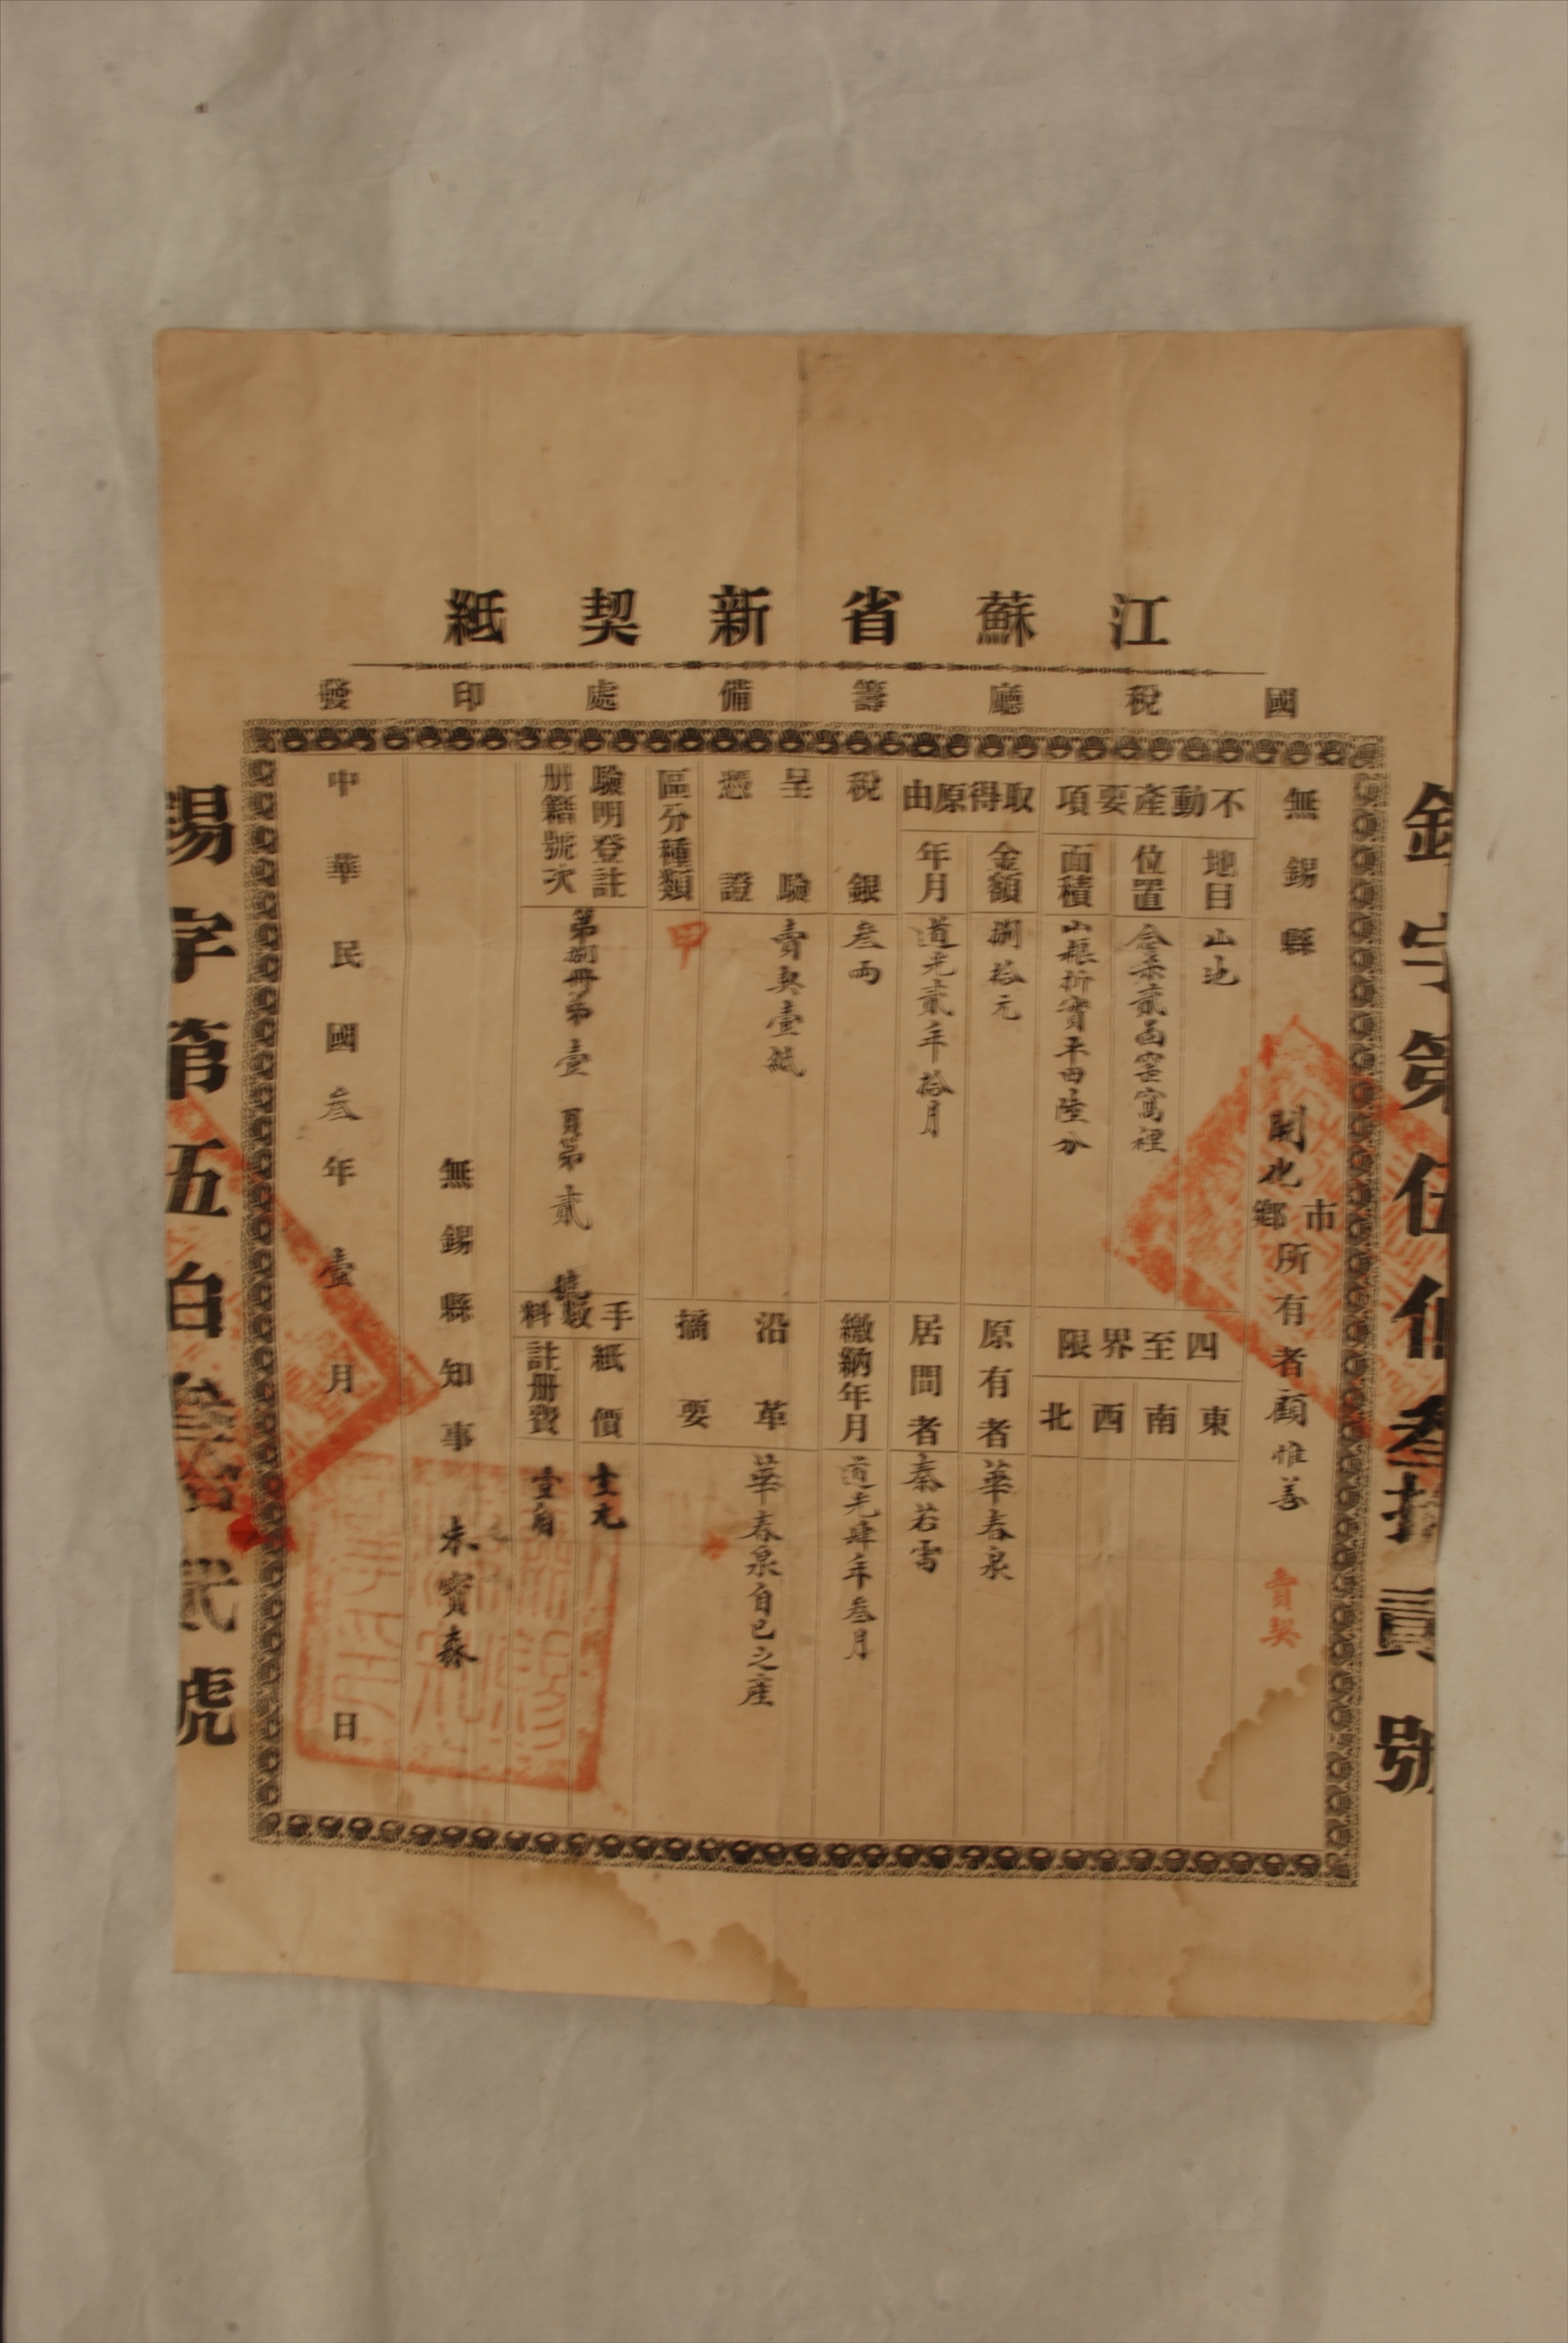 江蘇省新契紙
國稅廳籌備處印發
字第伍佰叁拾貳號
無錫縣 開化市鄉所有者顧惟善 賣契
不動產要項
地目 山地
位置
面積 山糧折實平田陸分
四至界限
東
南
西
北
取得原由
金額 捌拾元
年月 道光貳年拾月
原有者 華春泉
居間者 秦若雪
稅銀 叁兩
繳納年月 道光肆年叁月
呈驗憑證 賣契壹紙
區分種類 甲
沿革摘要 華春泉自己之產
驗明登註册籍號次 第捌冊第壹頁第貳號
手數料
紙價 壹元
註册費 壹角
無錫縣知事 朱寳森
中華民國叁年壹月 日
錫字第五伯叁拾貳號